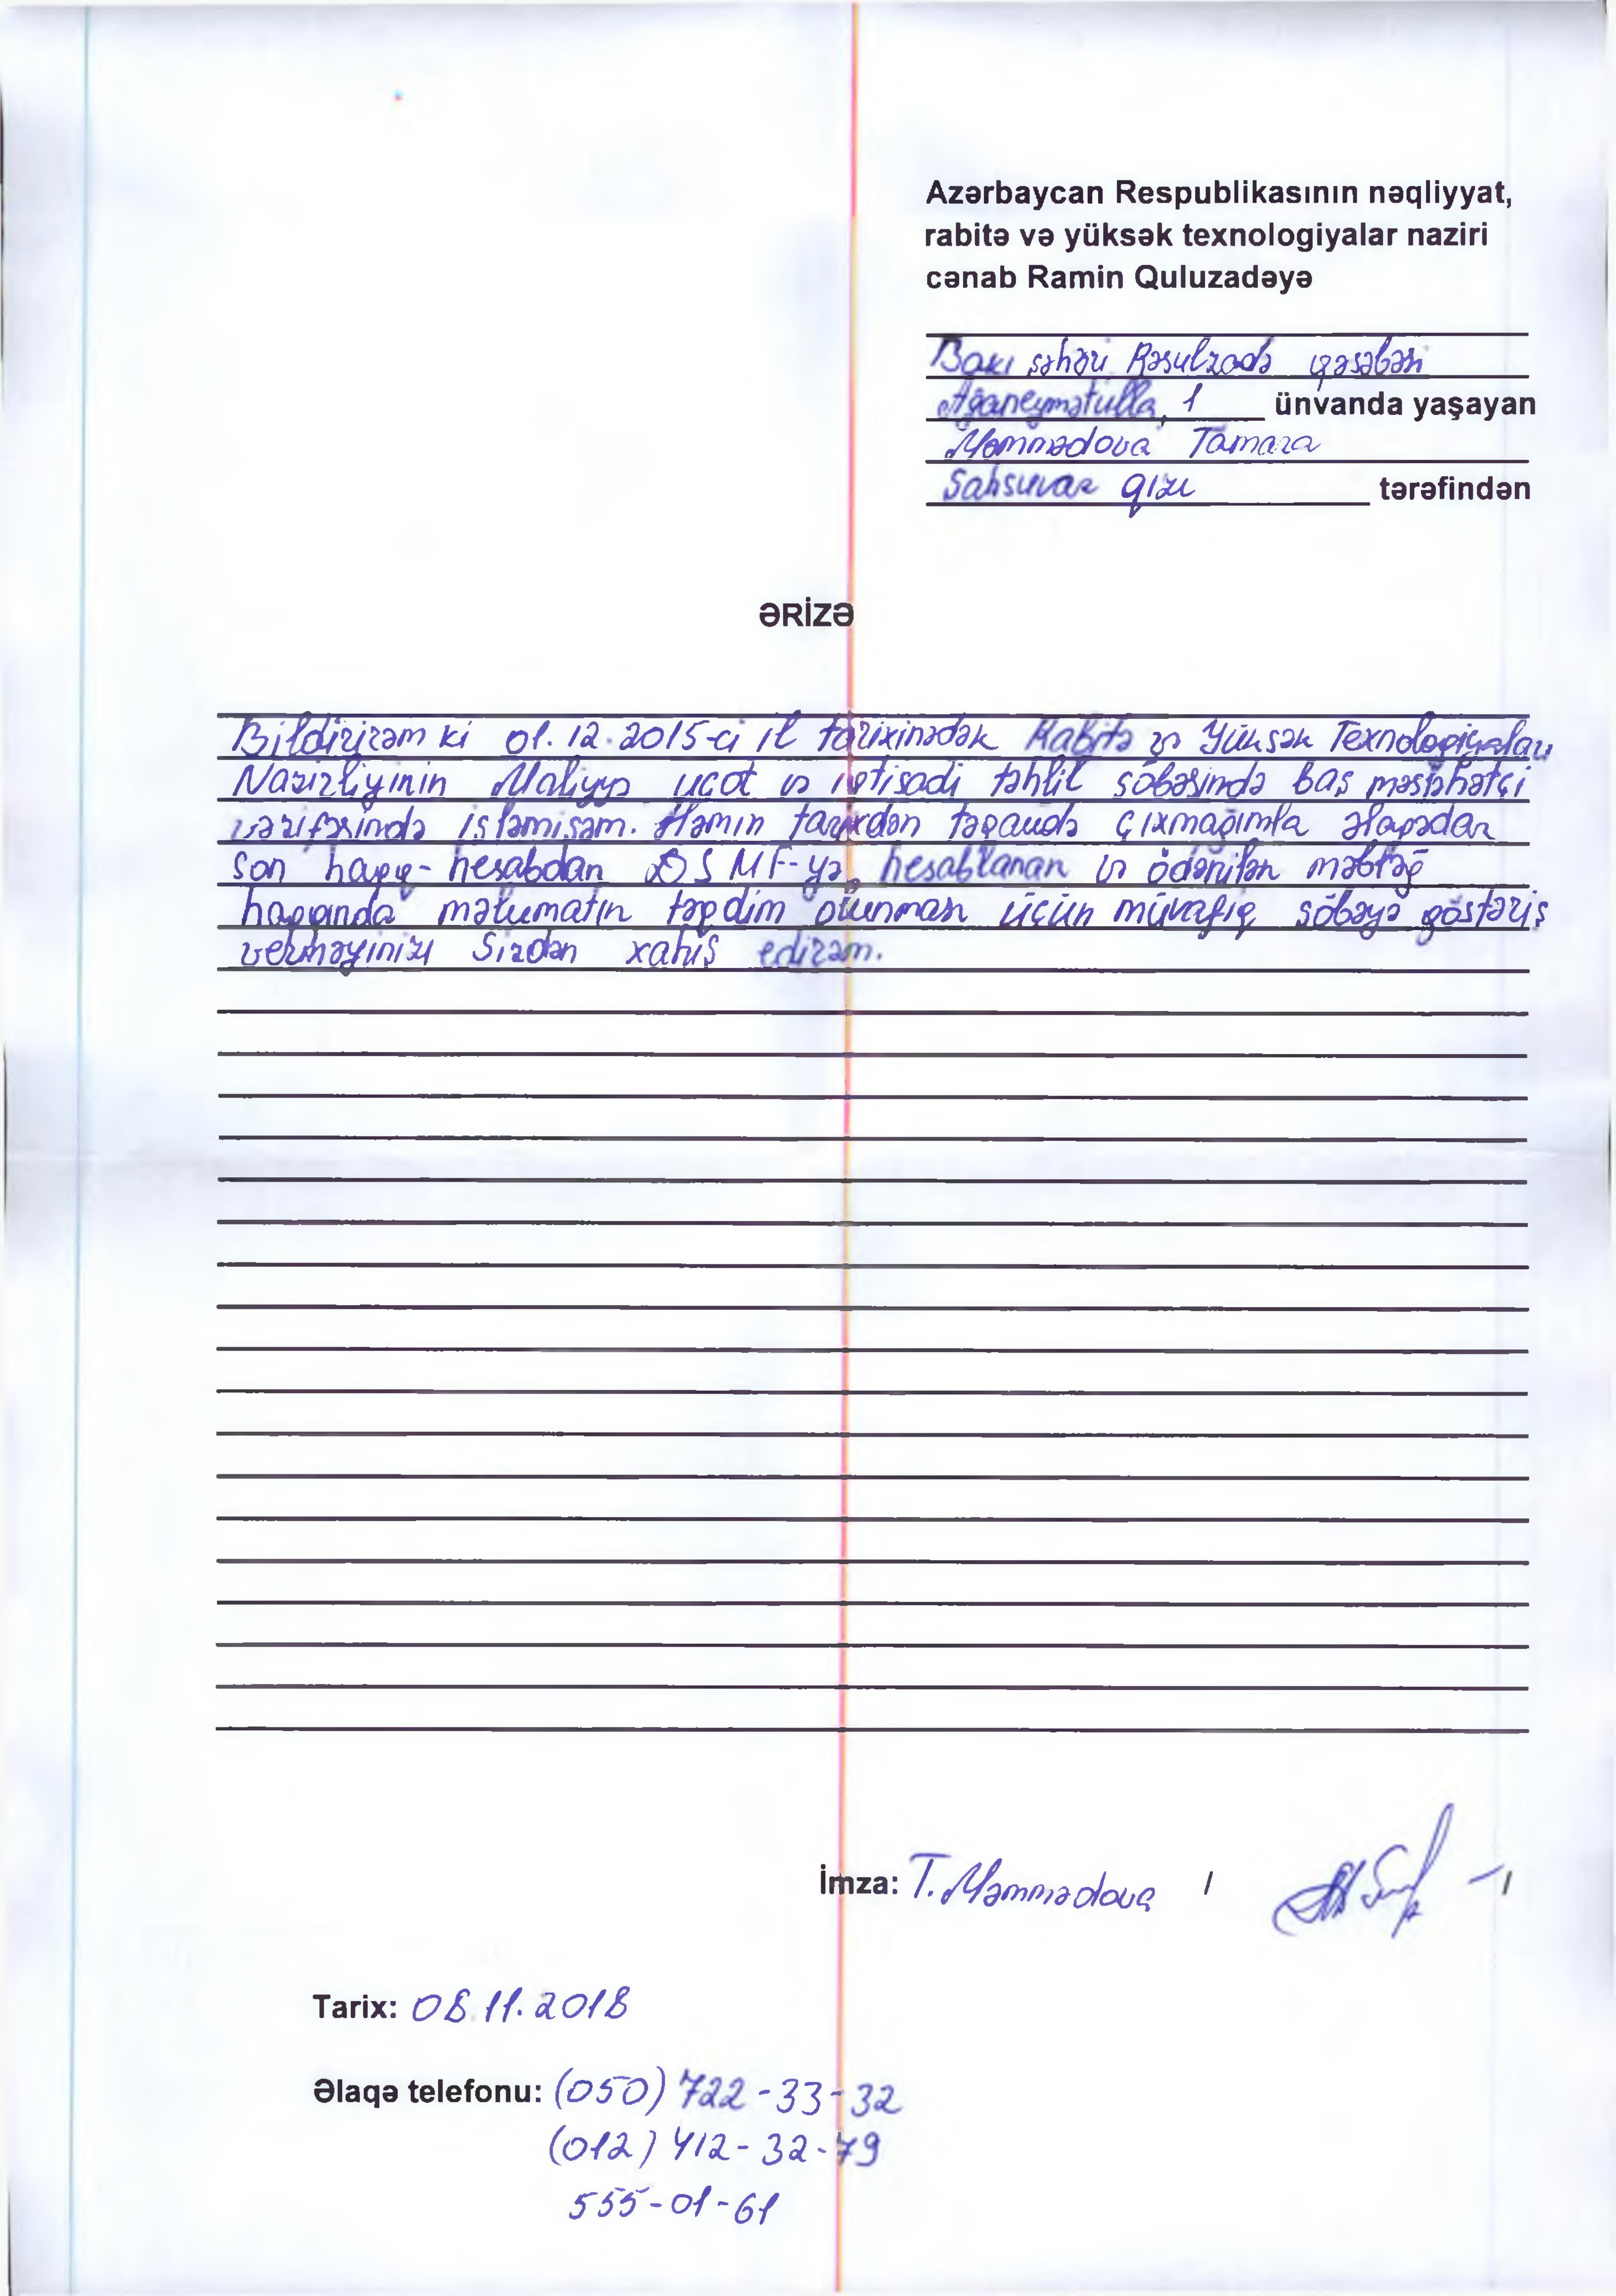 Azərbaycan Respublikasının nəqliyyat,
rabitə və yüksək texnologiyalar naziri
cənab Ramin Quluzadəyə
Bakı şəhəri Rəsulzadə qəsəbəsi
Ağaneymətulla, 1 ünvanda yaşayan
Məmmədova Tamara
Şahsuvar qızı tərəfindən
ƏRİZƏ
Bildirirəm ki 01.12.2015-ci il tarixinədək Rabitə və Yüksək Texnologiyaları
Nazirliyinin Maliyyə uçot və iqtisadi təhlil şöbəsində baş məsləhətçi
vəzifəsində işləmişəm. Həmin tarixdən təqaüdə çıxmağımla əlaqədar
son haqq-hesabdan DSMF-yə hesablanan və ödənilən məbləğ
haqqında məlumatın təqdim olunması üçün müvafiq şöbəyə göstəriş
verməyinizi Sizdən xahiş edirəm.
İmza: T. Məmmədova / /
Tarix: 08.11.2018
Əlaqə telefonu: (050) 722-33-32
(012) 412-32-79
555-01-61